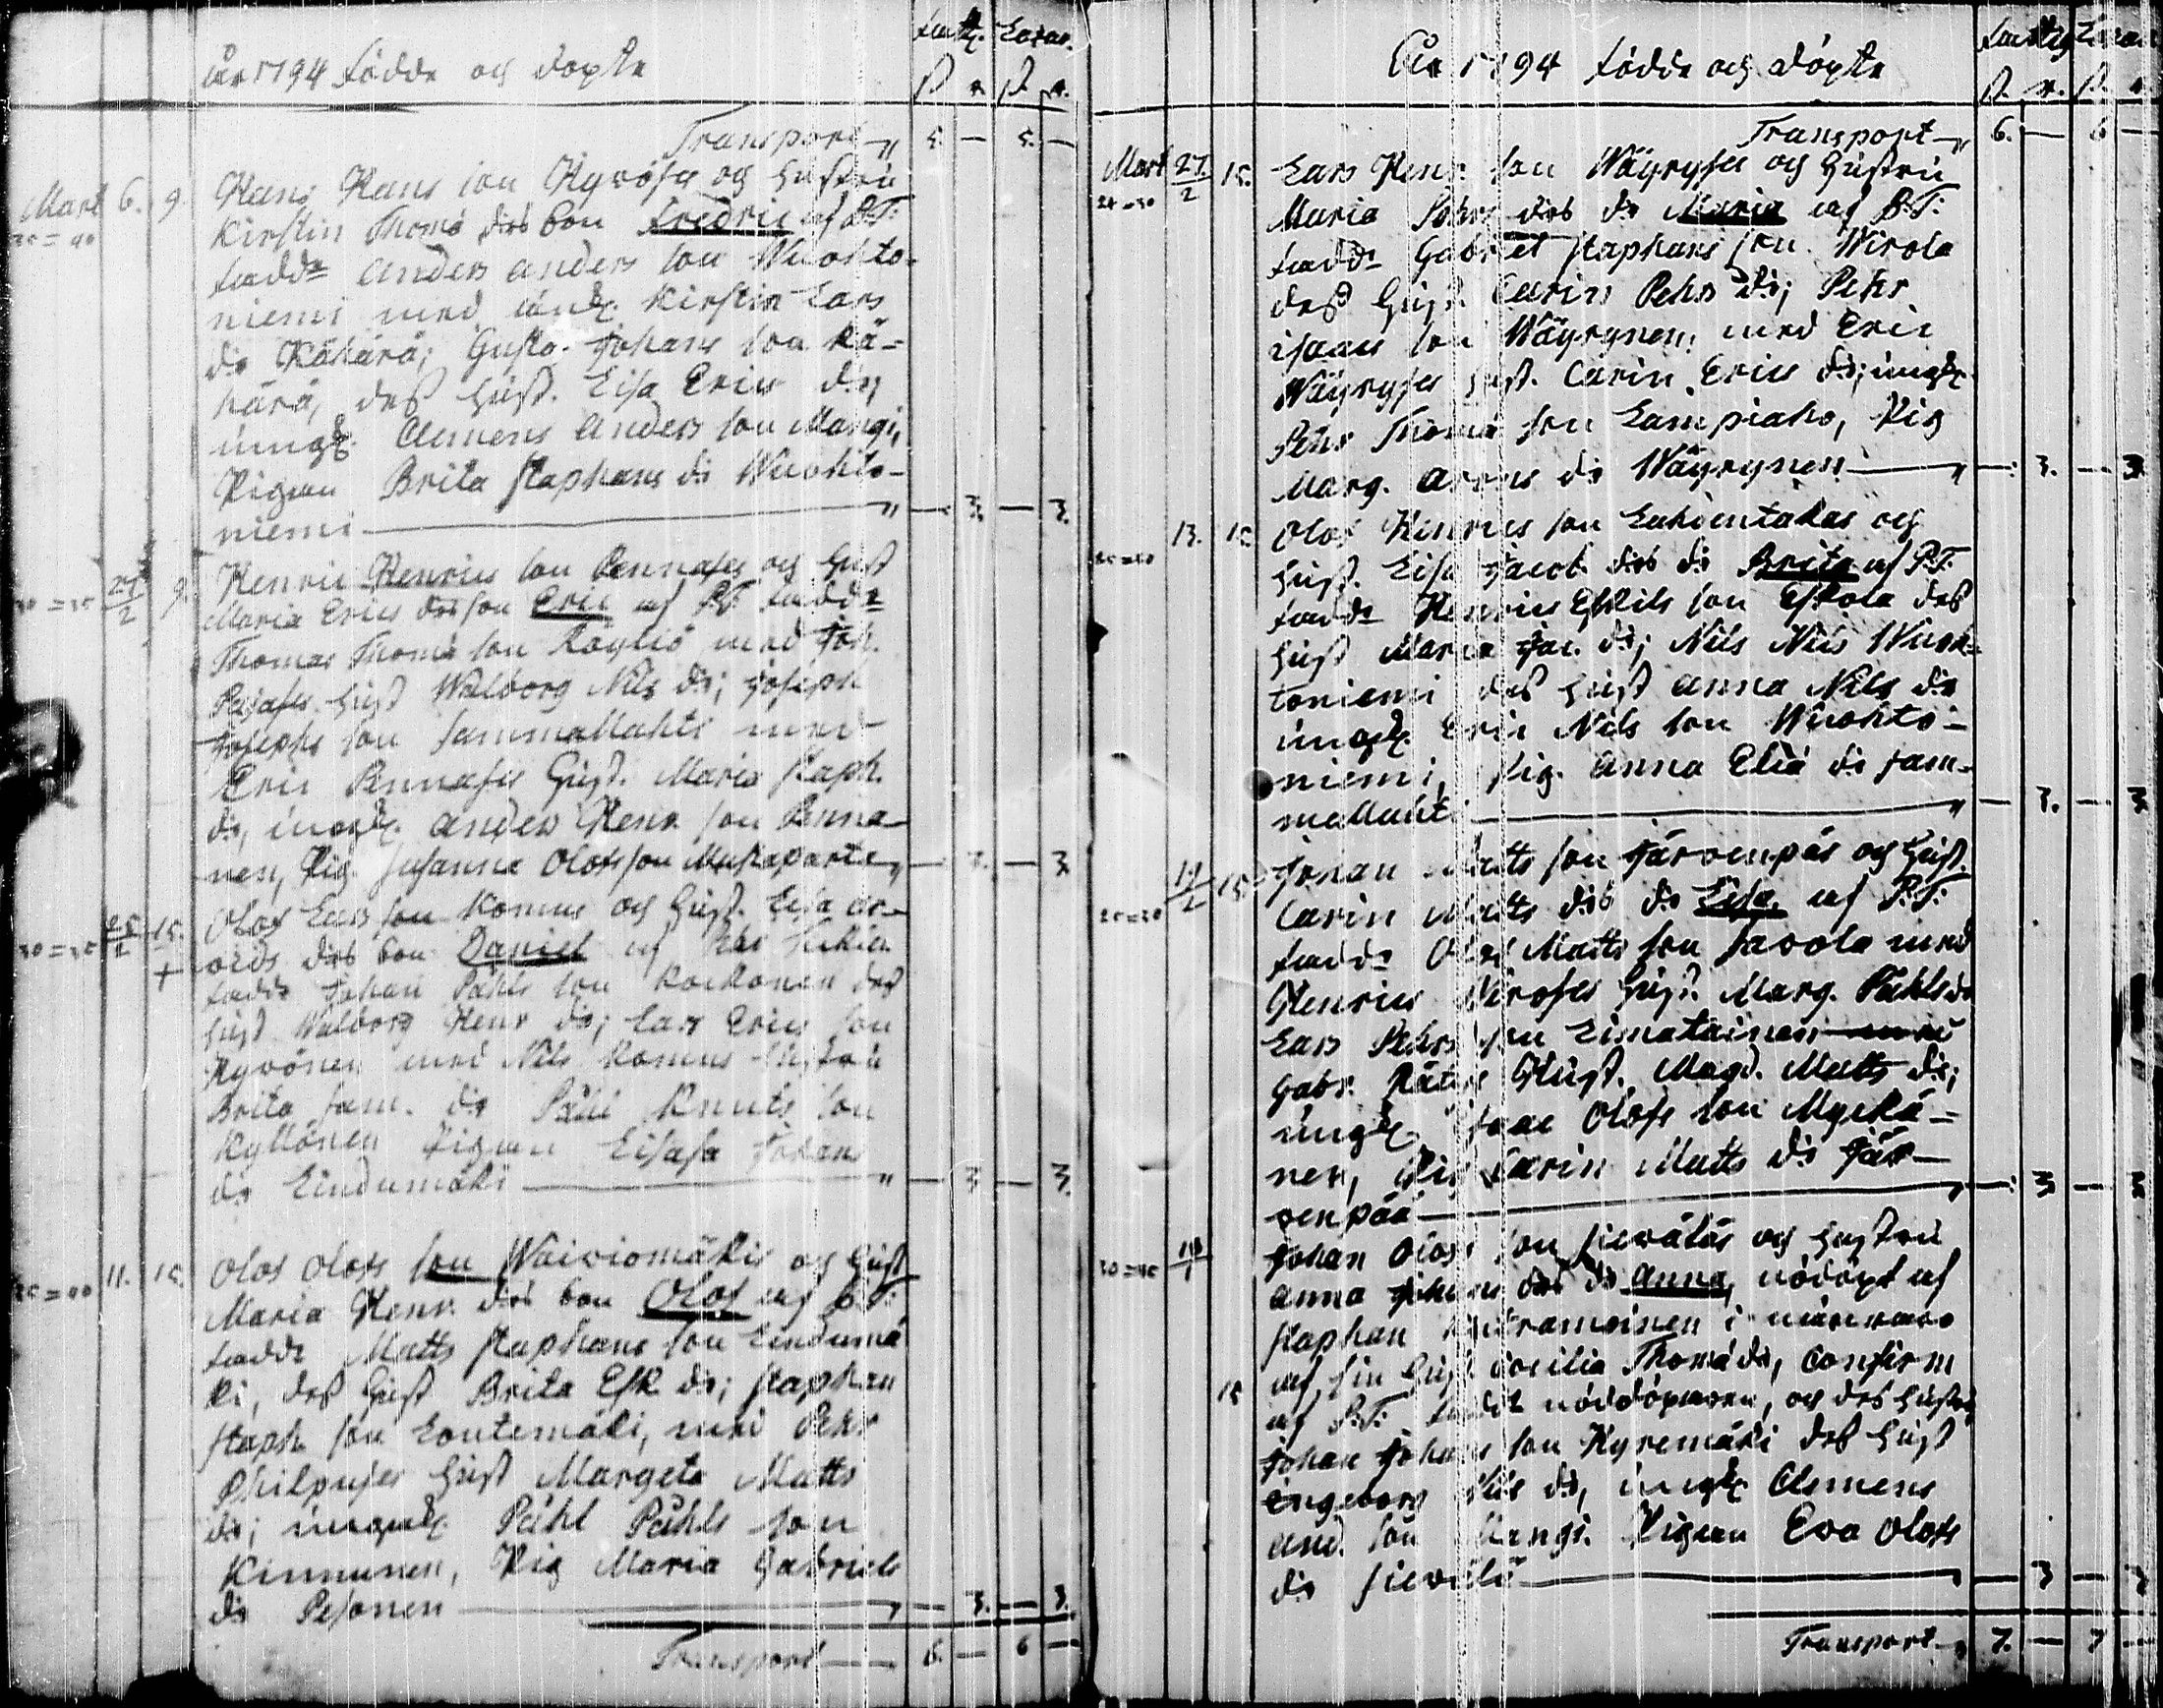 år 1794 födde og döpte
Transport 5. — 5. —
Mart 6. 9. Hans Hans son Hyvöses og hustru
35=40 Kirstin Thoms drs son Fredric af P.T.
fadd. Anders Anders son Wuohto-
niemi med Kirstin Lars
dr Kähärä; Gust. Johans son Kä-
härä, dess hust. Lisa Erics dr;
ungk. Clemens Anders son Mangi,
Pigan Brita Staphans dr Wuohto-
niemi — 3. — 3.
27/2 9. Henric Henrics son Pennases og hust
30=35 Maria Erics drs son Eric af P.T. fadd.
Thomas Thoms son Köyliö med Joh.
hust Walborg Nils dr; Joseph
Josephs son Sammallahti med
Eric Pennases hust. Maria Staph.
dr, ungk. Anders Henr. son Penna-
nen, Pig. Susanna Olofs son Mustaparta — 3. — 3
25/2 15. Olof Lars son Komus og hust. Lisa
30=35 + drs son Daniel af
fadd. Johan Påhls son Korkonen dess
hust Walborg Henr dr; Lars Erics son
Hyvönen med Nils Komus hustru
Brita Sam. dr Påhl Knuts son
Kyllönen Pigan Johans
dr Lindumäki — 3 — 3.
11. 15. Olof Olofs son Waiviomäkis og hust
35=40 Maria Henr. drs son Olof af P.T.
fadd. Matts Staphans son Lindumä
ki, dess hust Brita Esk. dr; Staphan
Staph. son Lontemäki, med Pehr
Philpuses hust Margeta Matts
dr; Påhl Påhls son
Kinnunen, Pig Maria Gabriels
dr Pesonen — 3. — 3.
Transport — 6. — 6 —
År 1794 födde og döpte
Transport 6. — 6 —
Mart 27/2 15. Lars Henr. son Wäyryses og hustru
Maria Pehrs drs dr Maria af P.T.
fadd. Gabriel Staphans son Wirola
dess hust. Carin Pehrs dr; Pehr
Isaacs son Wäyrynen, med Eric
Wäyryses hust. Carin Erics dr; ungk.
Pehr Thoms son Lampiaho, Pig
Marg. dr Wäyrynen — 3. — 3.
13. 15 Olof Henrics son Lahdentakas og
hust. Lisa Jacob. drs dr Brita af P.T.
fadd. Henrics Eskils son Eskola dess
hust Maria Jac. dr; Nils Nils Wuoh-
toniemi dess hust Anna Nils dr
ungk. Eric Nils son Wuohto-
niemi, Pig. Anna Eliæ dr Sam-
mallaht — 3. — 3
15. Johan Matts son Järvenpäs og hust.
Carin Matts drs dr Lisa af P.T.
fadd. Olof Matts son Savola med
Henrics hust. Marg. Påhls dr
Lars Pehrs son Limatainen med
Gabr. hust. Magd. Matts dr;
ungk. Isaac Olofs son Myckä-
nen, Pig Carin Matts dr Jär-
venpää — 3 — 3
Johan Olofs son Sieväläs og hustru
Anna Johans drs dr Anna, nödöpt af
Staphan i närvaro
af sin hust Cecilia Thoms dr, confirm
15 af P.T. fadd. nöddöparen, og dess hustru
Johan Johans son Hyremäki dess hust
Engeborg Nils dr, ungk. Clemens
And. son Mangi. Pigan Eva Olofs
dr Sievälä — 3 — 3
Transport — 7. — 7 —